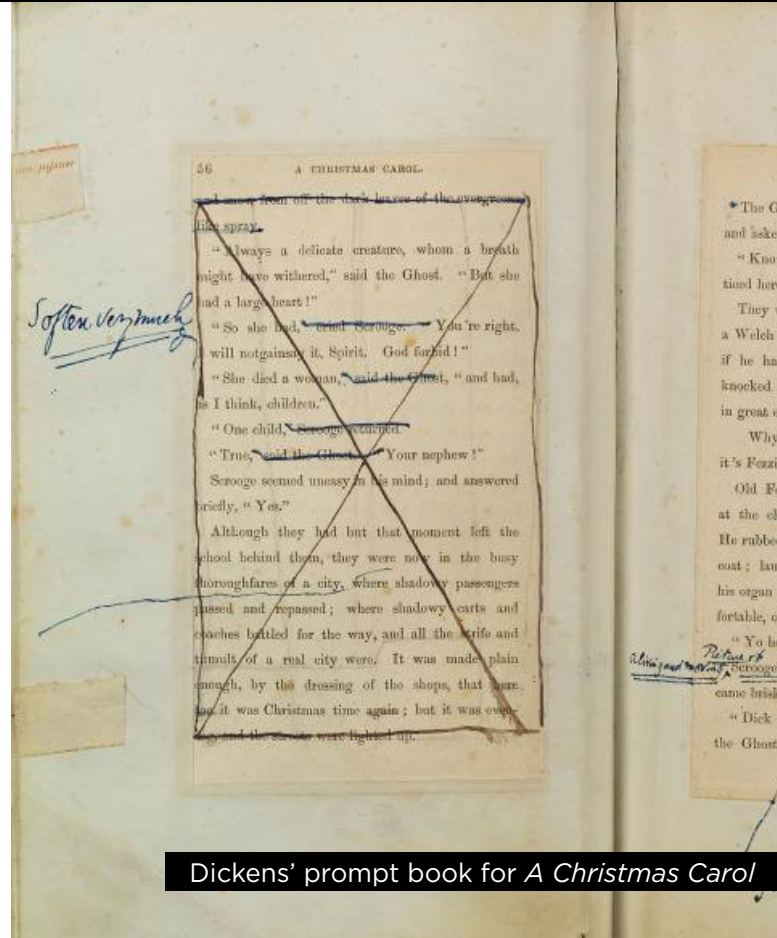 56 A CHRISTMAS CAROL.
and snow from off the dark leaves of the evergreens
like spray.
“Always a delicate creature, whom a breath
might have withered,” said the Ghost. “But she
had a large heart!”
“So she had,” cried Scrooge. “You’re right.
I will notgainsay it, Spirit. God forbid!”
“She died a woman,” said the Ghost, “and had,
as I think, children.”
“One child,” Scrooge returned.
“True,” said the Ghost. “Your nephew!”
Scrooge seemed uneasy in his mind; and answered
briefly, “Yes.”
Although they had but that moment left the
school behind them, they were now in the busy
thoroughfares of a city, where shadowy passengers
passed and repassed; where shadowy carts and
coaches battled for the way, and all the strife and
tumult of a real city were. It was made plain
enough, by the dressing of the shops, that here
too it was Christmas time again; but it was even-
ing, and the streets were lighted up.
Soften very much
The G
and aske
“Kno
ticed her
They
a Welch
if he ha
knocked
in great e
Why
it’s Fezzi
Old Fe
at the cl
He rubbe
coat; lau
his organ
fortable, o
“Yo h
Picture of
Scrooge
came brisk
“Dick
the Ghost
Dickens’ prompt book for A Christmas Carol